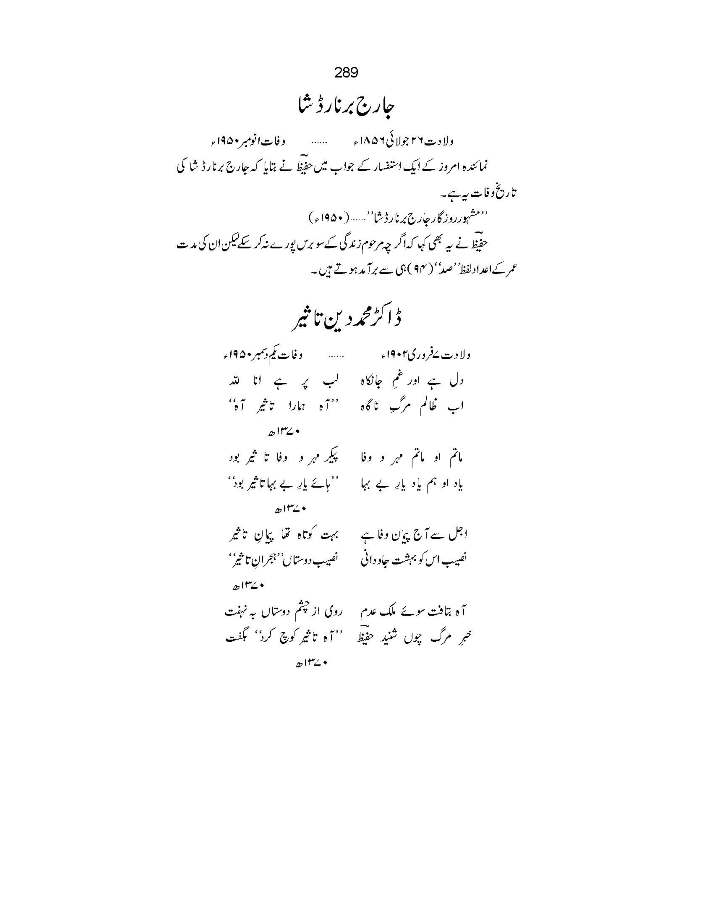 289
جارج برنارڈ شا
ولادت ۲۶ جولائی ۱۸۵۶ء ...... وفات ۱ نومبر ۱۹۵۰ء
نمائندہ امروز کے ایک استفسار کے جواب میں حفیظؔ نے بتایا کہ جارج برنارڈ شا کی
تاریخ وفات یہ ہے۔
''مشہور روزگار جارج برنارڈ شا''......(۱۹۵۰ء)
حفیظؔ نے یہ بھی کہا کہ اگر چہ مرحوم زندگی کے سو برس پورے نہ کر سکے لیکن ان کی مدت
عمر کے اعداد لفظ ''صد'' (۹۴) ہی سے برآمد ہوتے ہیں۔
ڈاکٹر محمد دین تاثیر
ولادت ۷ فروری ۱۹۰۲ء ...... وفات یکم دسمبر ۱۹۵۰ء
دل ہے اور غمِ جانکاہ لب پر ہے انا للہ
اب ظالم مرگِ ناگاہ ''آہ ہمارا تاثیر آہ''
۱۳۷۰ھ
ماتم او ماتم مہر و وفا پیکر مہر و وفا تاثیر بود
یاد او ہم یاد یارِ بے بہا ''ہائے یارِ بے بہا تاثیر بود''
۱۳۷۰ھ
اجل سے آج پیمان وفا ہے بہت کوتاہ تھا پیمانِ تاثیر
نصیب اس کو بہشت جاودانی نصیب دوستاں ''ہجرانِ تاثیر''
۱۳۷۰ھ
آہ بتافت سوئے ملک عدم روی از چشم دوستاں بہ نہفت
خبر مرگ چوں شنید حفیظؔ ''آہ تاثیر کوچ کرد'' بگفت
۱۳۷۰ھ